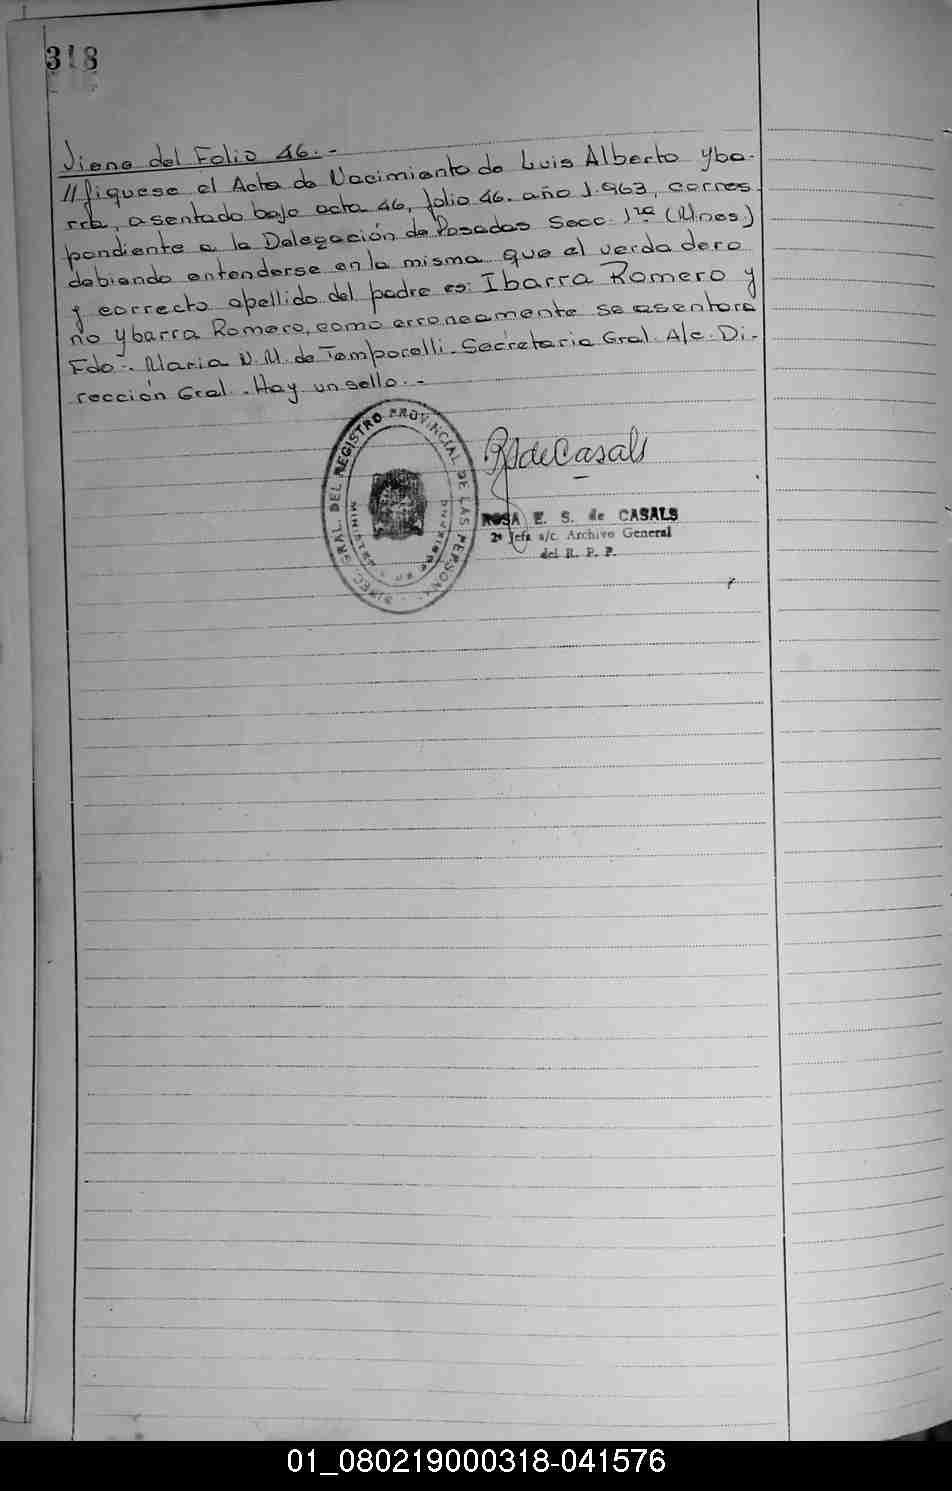 318
Viene del Folio 46.-
//fiquese el Acta de Nacimiento de Luis Alberto Yba-
rra, asentado bajo acta 46, folio 46. año 1.963, corres-
pondiente a la Delegación de Posadas Secc. 1ra (Mnes.)
debiendo entenderse en la misma que el verdadero
y correcto apellido del padre es: Ibarra Romero y
no Ybarra Romero, como erroneamente se asentara
Fdo.- Maria N. M. de Temporelli. Secretaria Gral. A/c. Di-
rección Gral.- Hay un sello.-
DIREC. GRAL. DEL REGISTRO PROVINCIAL DE LAS PERSONAS
MINISTERIO DE GOBIERNO
R S de Casals
ROSA E. S. de CASALS
2ª Jefa a/c. Archivo General
del R. P. P.
01_080219000318-041576